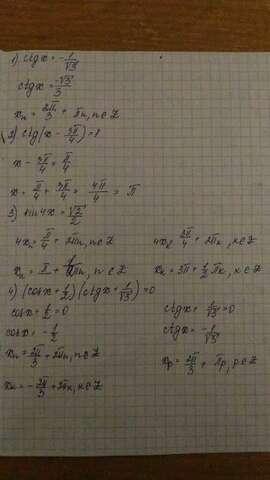 1) ctg x = -1/√3
ctg x = -√3/3
xₙ = 2π/3 + πn, n∈Z
2) ctg(x - 3π/4) = 1
x - 3π/4 = π/4
x = π/4 + 3π/4 = 4π/4 = π
3) sin4x = √2/2
4xₙ = π/4 + 2πn, n∈Z 4xₖ = 3π/4 + 2πk, k∈Z
xₙ = π + 1/2πn, n∈Z xₖ = 3π + 1/2πk, k∈Z
4) (cosx + 1/2)(ctgx + 1/√3) = 0
cosx + 1/2 = 0 ctgx + 1/√3 = 0
cosx = -1/2 ctgx = -1/√3
xₙ = 2π/3 + 2πn, n∈Z xₚ = 2π/3 + πp, p∈Z
xₖ = -2π/3 + 2πk, k∈Z